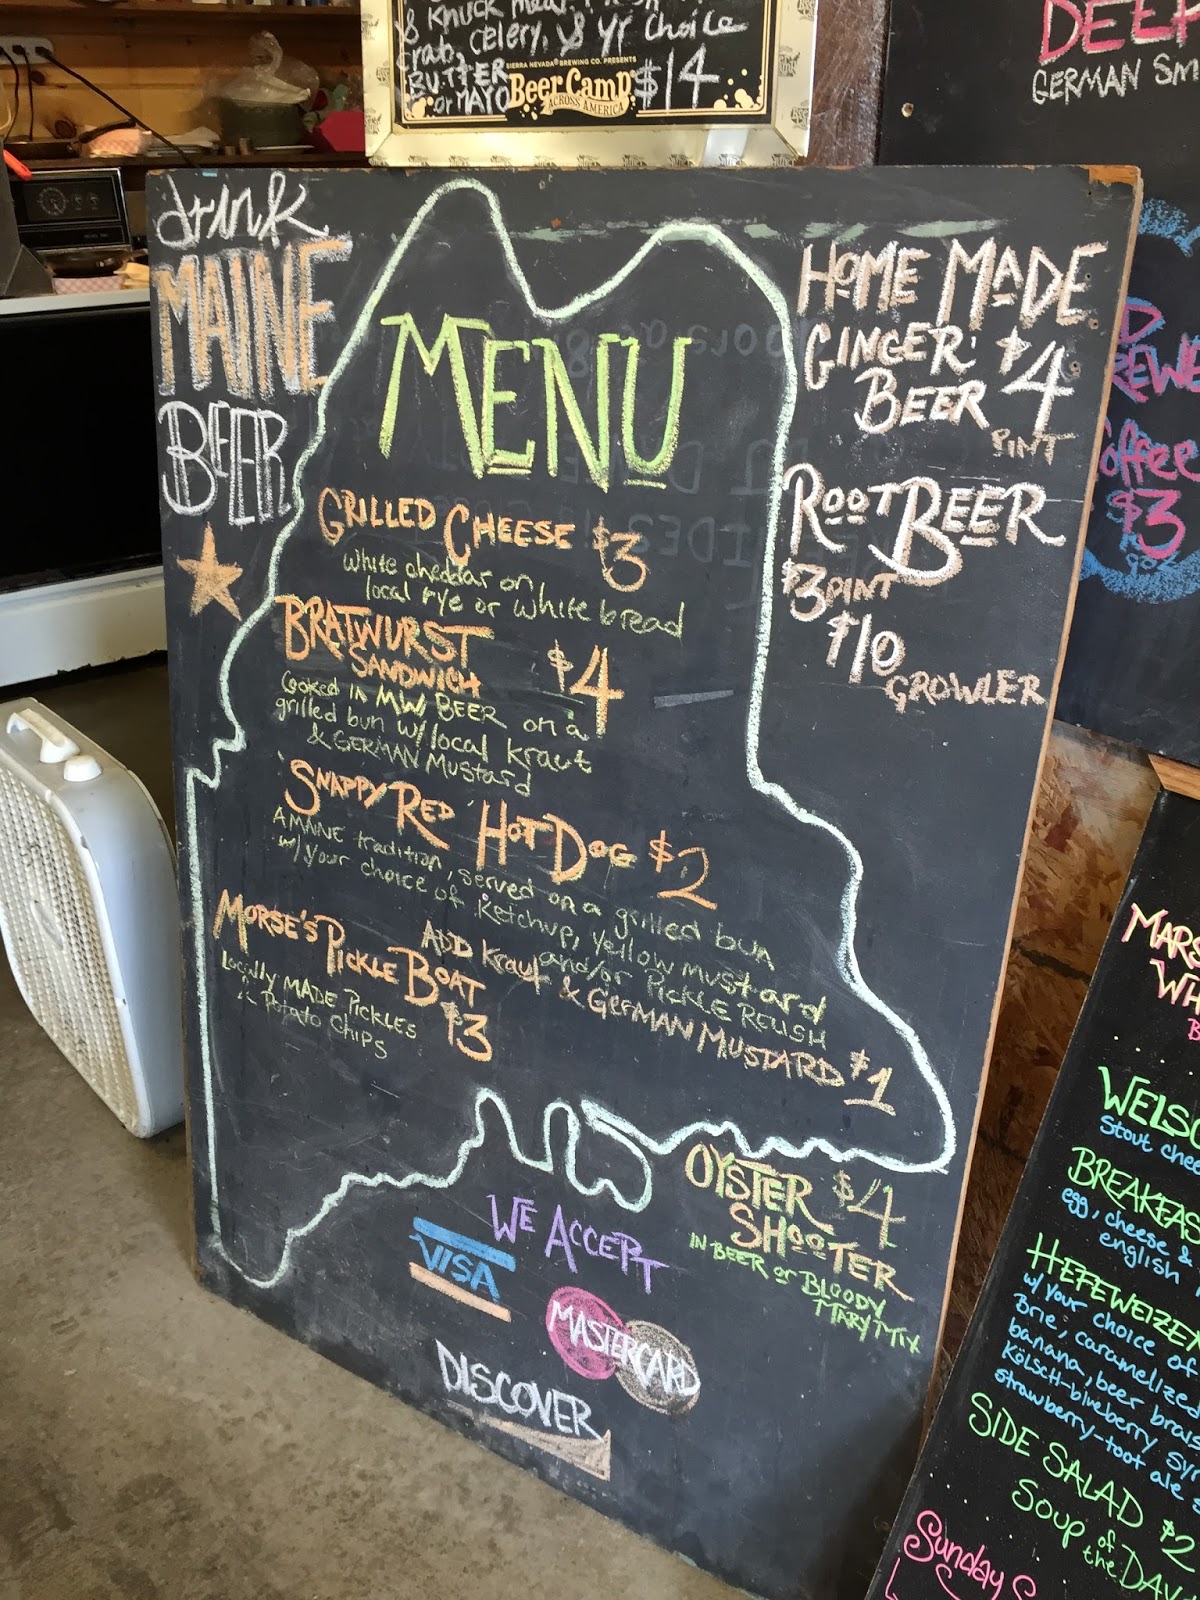 & Knuck meat
crab, celery, & yr choice
BUTTER
or MAYO
$14
SIERRA NEVADA® BREWING CO. PRESENTS
Beer Camp
ACROSS AMERICA
DEEP
GERMAN SM
drink
MAINE
BEER
MENU
GRILLED CHEESE $3
white cheddar on
local rye or white bread
BRATWURST
SANDWICH $4
Cooked in MW BEER on a
grilled bun w/ local kraut
& GERMAN Mustard
SNAPPY RED HOT DOG $2
A MAINE tradition, served on a grilled bun
w/ your choice of ketchup, yellow mustard
and/or PICKLE RELISH
ADD Kraut & GERMAN MUSTARD $1
MORSE'S PICKLE BOAT
$3
LOCALLY MADE PICKLES
& Potato CHIPS
HOME MADE
GINGER
BEER $4
PINT
ROOT BEER
$3 PINT
$10
GROWLER
OYSTER $4
SHOOTER
IN BEER or BLOODY
MARY MIX
WE ACCEPT
VISA
MASTERCARD
DISCOVER
REWE
Coffee
$3
MARS
WH
WELS
Stout chee
BREAKFAS
egg, cheese &
english
HEFEWEIZEN
w/ your choice of
Brie, caramelized
banana, beer brais
Kölsch-blueberry syr
strawberry-toot ale s
SIDE SALAD $2
SOUP of the DAY
Sunday S